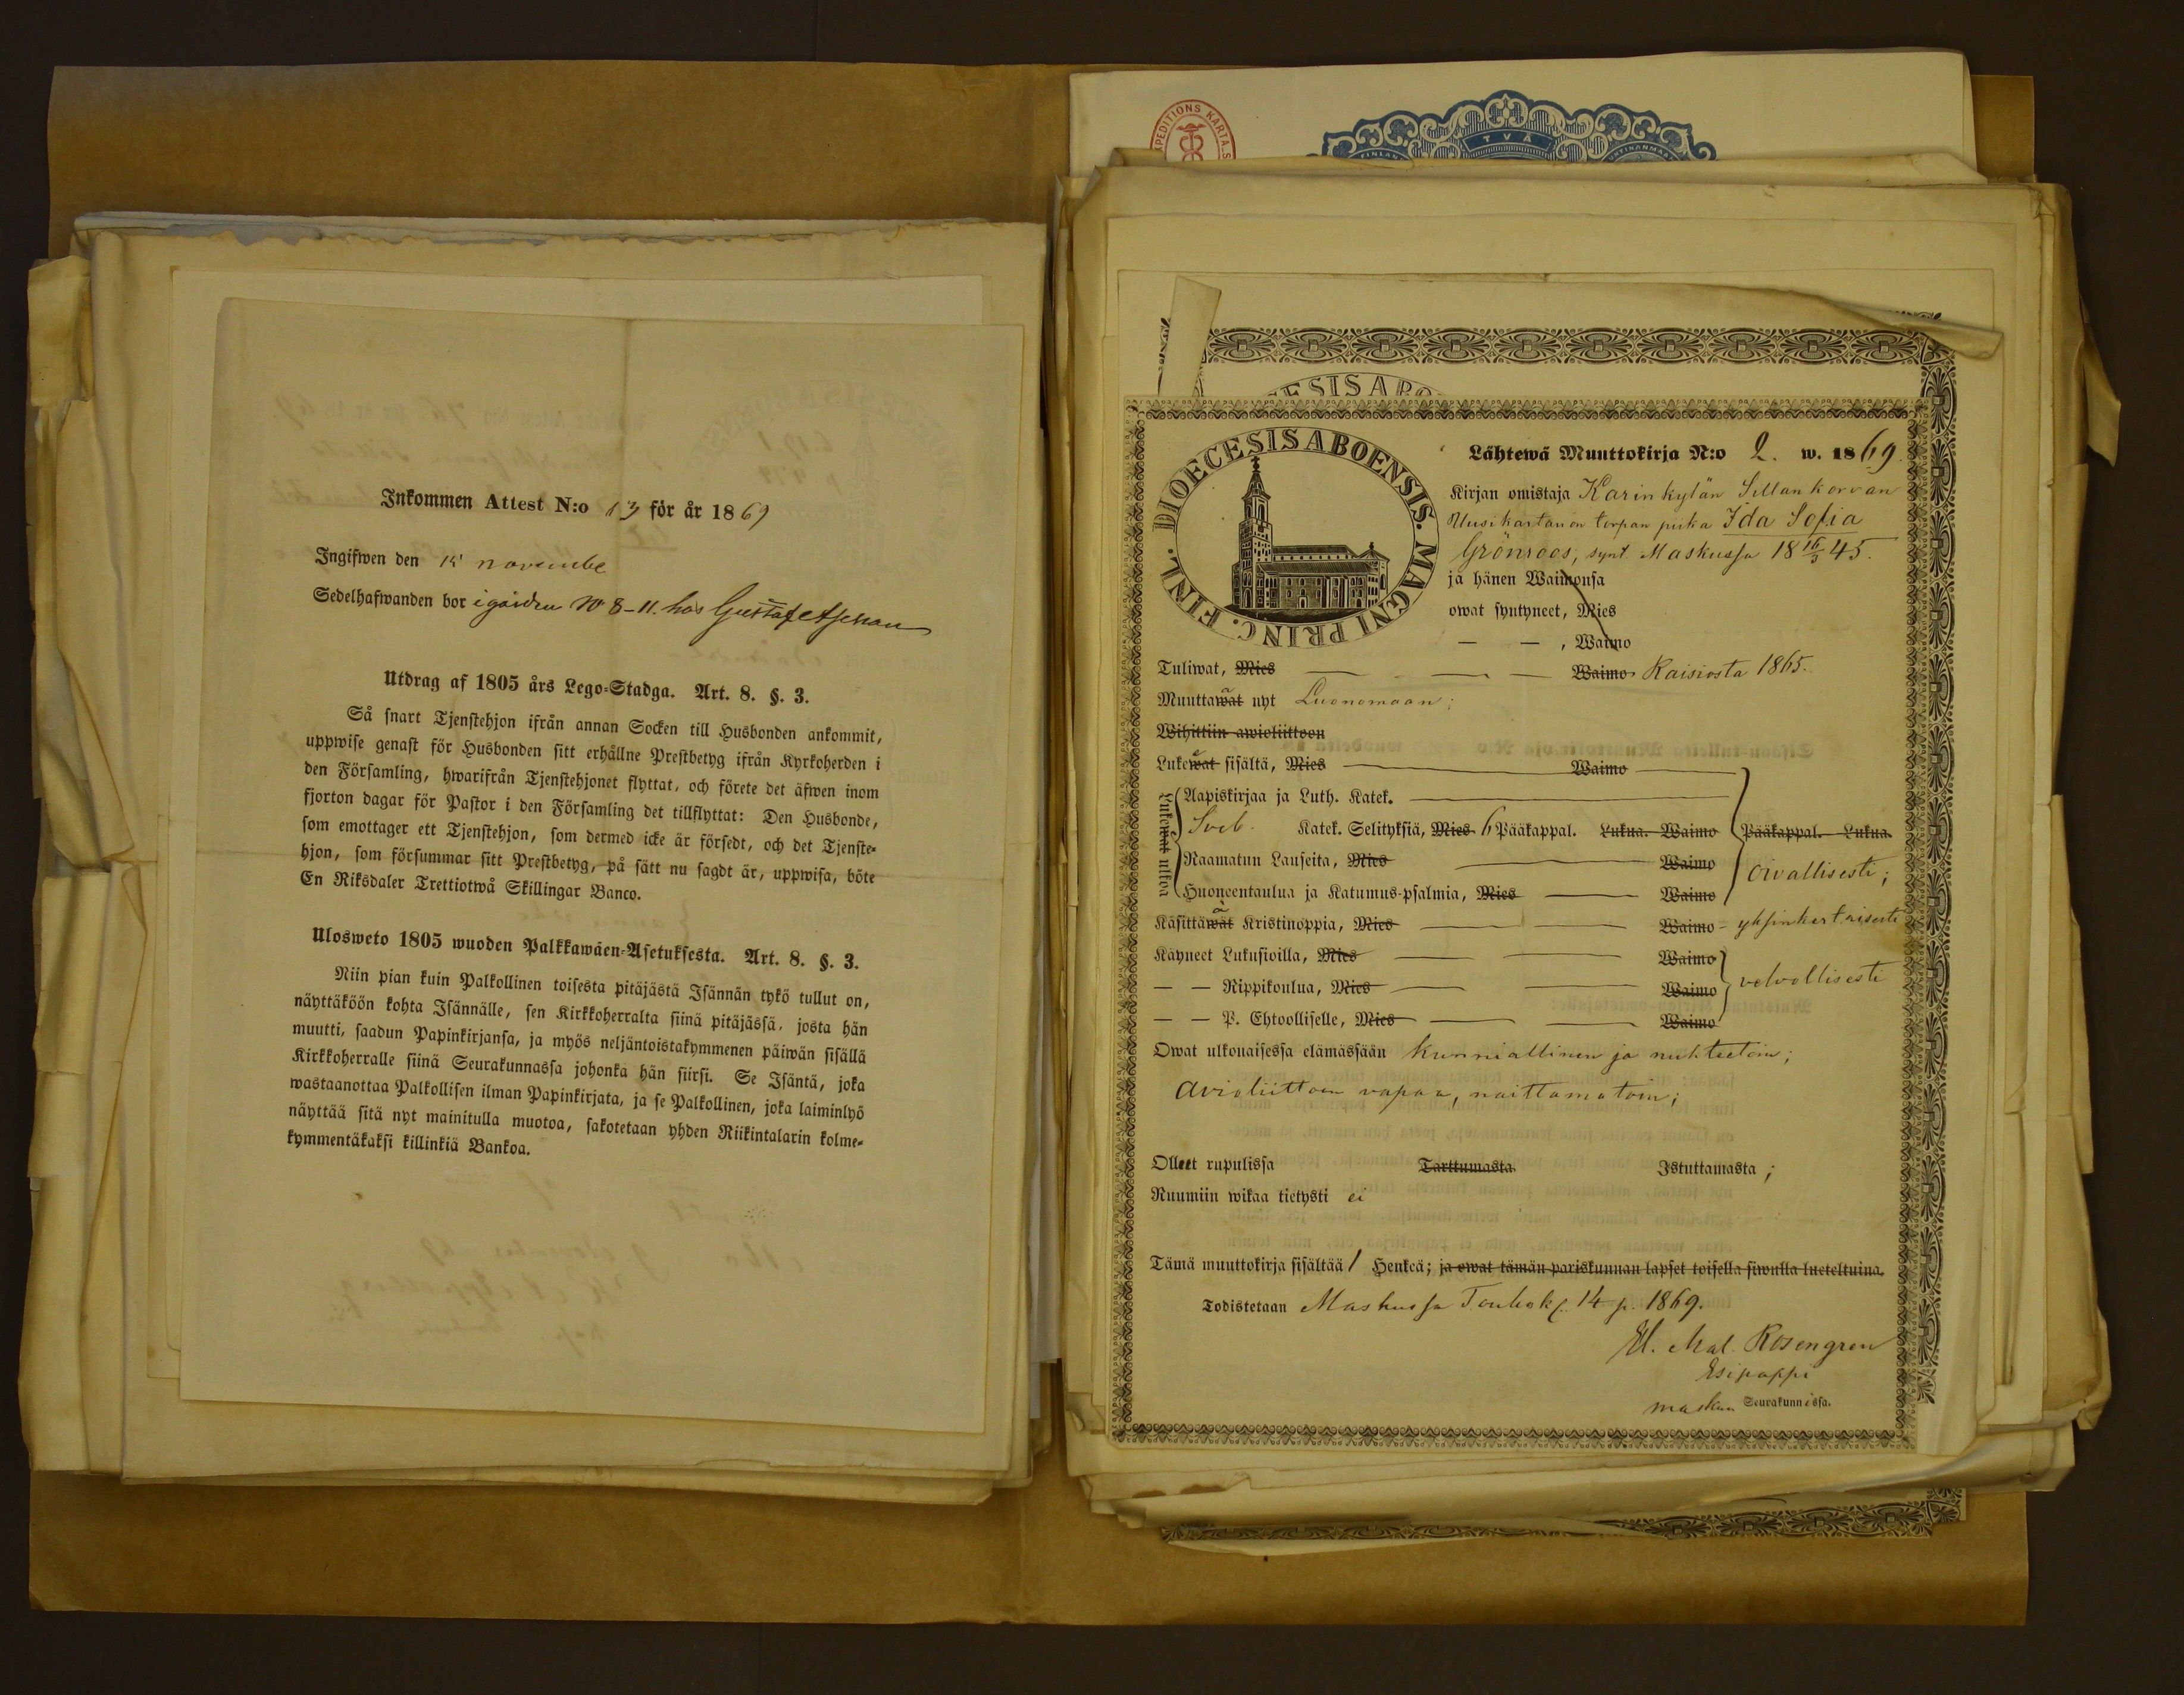 Inkommen Attest N:o 13 för år 1869
Ingifwen den 15 novembe
Sedelhafwanden bor i gården No 8-11. hos Gustaf
Utdrag af 1805 års Lego-Stadga. Art. 8. §. 3.
Så snart Tjenstehjon ifrån annan Socken till Husbonden ankommit,
uppwise genast för Husbonden sitt erhållne Prestbetyg ifrån Kyrkoherden i
den Församling, hwarifrån Tjenstehjonet flyttat, och förete det äfwen inom
fjorton dagar för Pastor i den Församling det tillflyttat: Den Husbonde,
som emottager ett Tjenstehjon, som dermed icke är försedt, och det Tjenste-
hjon, som försummar sitt Prestbetyg, på sätt nu sagdt är, uppwisa, böte
En Riksdaler Trettiotwå Skillingar Banco.
Ulosweto 1805 wuoden Palkkawäen-Asetuksesta. Art. 8. §. 3.
Niin pian kuin Palkollinen toisesta pitäjästä Isännän tykö tullut on,
näyttäköön kohta Isännälle, sen Kirkkoherralta siinä pitäjässä, josta hän
muutti, saadun Papinkirjansa, ja myös neljäntoistakymmenen päiwän sisällä
Kirkkoherralle siinä Seurakunnassa johonka hän siirsi. Se Isäntä, joka
wastaanottaa Palkollisen ilman Papinkirjata, ja se Palkollinen, joka laiminlyö
näyttää sitä nyt mainitulla muotoa, sakotetaan yhden Riikintalarin kolme-
kymmentäkaksi killinkiä Bankoa.
EXPEDITIONS KARTA.S
TVÅ
FINLAN
DIOECESIS ABOENSIS. MAGNI PRINC. FINL.
Lähtewä Muuttokirja N:o 2. w. 1869.
Kirjan omistaja Karinkylän Sillankorvan
Uusikartanon torpan piika Ida Sofia
Grönroos, synt. Maskussa 18 16/3 45.
ja hänen Waimonsa
owat syntyneet, Mies
— — , Waimo
Tuliwat, Mies — — — Waimo Raisiosta 1865.
Muuttawat ä nyt Luonomaan;
Wihittiin awioliittoon
Lukewat sisältä, Mies — Waimo —
Lukewat ulkoa
Aapiskirjaa ja Luth. Katek. —
Sveb. Katek. Selityksiä, Mies 6 Pääkappal. Lukua. Waimo Pääkappal. Lukua.
Raamatun Lauseita, Mies — Waimo
oivallisesti;
Huoneentaulua ja Katumus-psalmia, Mies — Waimo
Käsittäwät ä Kristinoppia, Mies — — Waimo – yksinkertaisesti
Käyneet Lukusioilla, Mies — — Waimo
— — Rippikoulua, Mies — — Waimo velvollisesti
— — P. Ehtoolliselle, Mies — — Waimo
Owat ulkonaisessa elämässään kunniallinen ja nuhteetoin;
avioliittoon vapaa, naittamatoin;
Olleet rupulissa Tarttumasta Istuttamasta ;
Ruumiin wikaa tietysti ei
Tämä muuttokirja sisältää 1 Henkeä; ja owat tämän pariskunnan lapset toisella siwulla lueteltuina.
Todistetaan Maskussa Toukok. 14 p. 1869.
Mal. Rosengren
Esipappi
maskun Seurakunnissa.